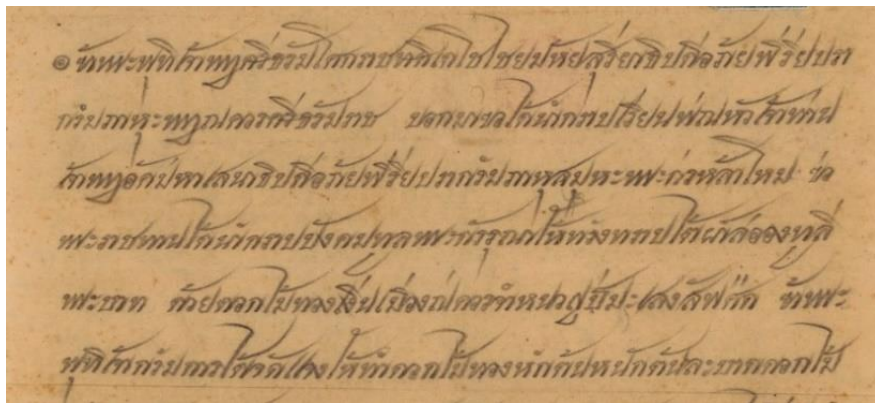 ๏ ข้าพระพุทิเจ้าพญาศรีธรัมโศกราชชาติเดโชไชยมไหยสุริยาธิบดีอภัยพิรียปรา
กรมภาหุะพญาณครศรีธรัมราช บอกมา ได้นำกราปเรียนพ่ณหัวเจ้าท่าน
เจ้าพญาอัคมหาเสนาธิบดีอภัยพิรียปรากรมภาหุสมุหะพระกะลาโหม ขอ
พระราชทานได้นำกราปบังคมทูลพระกรุณาให้ ทราปใต้ฝ่าลอองทูลี
พระบาท ด้วยดอกไม้ทองเงินเมืองณคร ปีมะเสงสัพศ๊ก ข้าพระ
พุทิเจ้ากรมการได้จัดแจงให้ทำดอกไม้ทอง หนักต้นละบาทดอกไม้